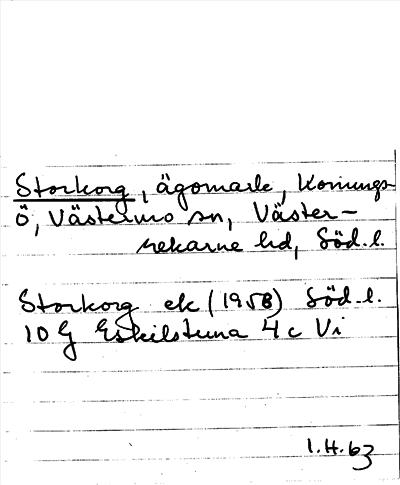 Storkorg, ägomark, Konungs-
ö, Västermo sn, Väster-
rekarne hd, Söd.l.
Storkorg ek (1958) Söd.l.
10 G Eskilstuna 4c Vi
1.H.63